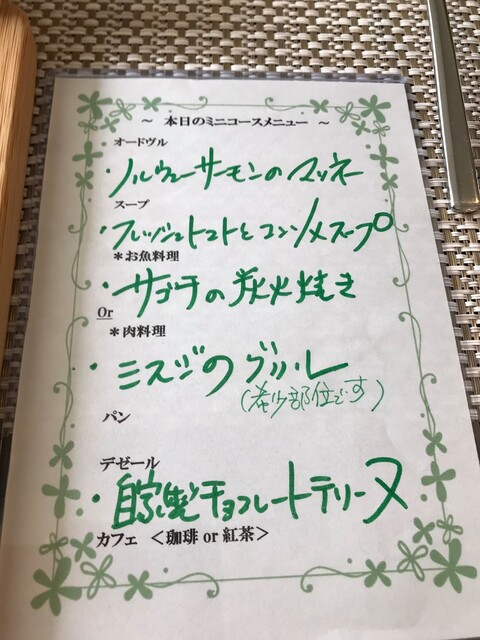 ~ 本日のミニコースメニュー ~
オードヴル
・ノルウェーサーモンのマリネ
スープ
・フレッシュトマトとコンソメスープ
＊お魚料理
・サワラの炭火焼き
Or
＊肉料理
・ミスジのグリル
(希少部位です)
パン
デゼール
・自家製チョコレートテリーヌ
カフェ <珈琲 or 紅茶>